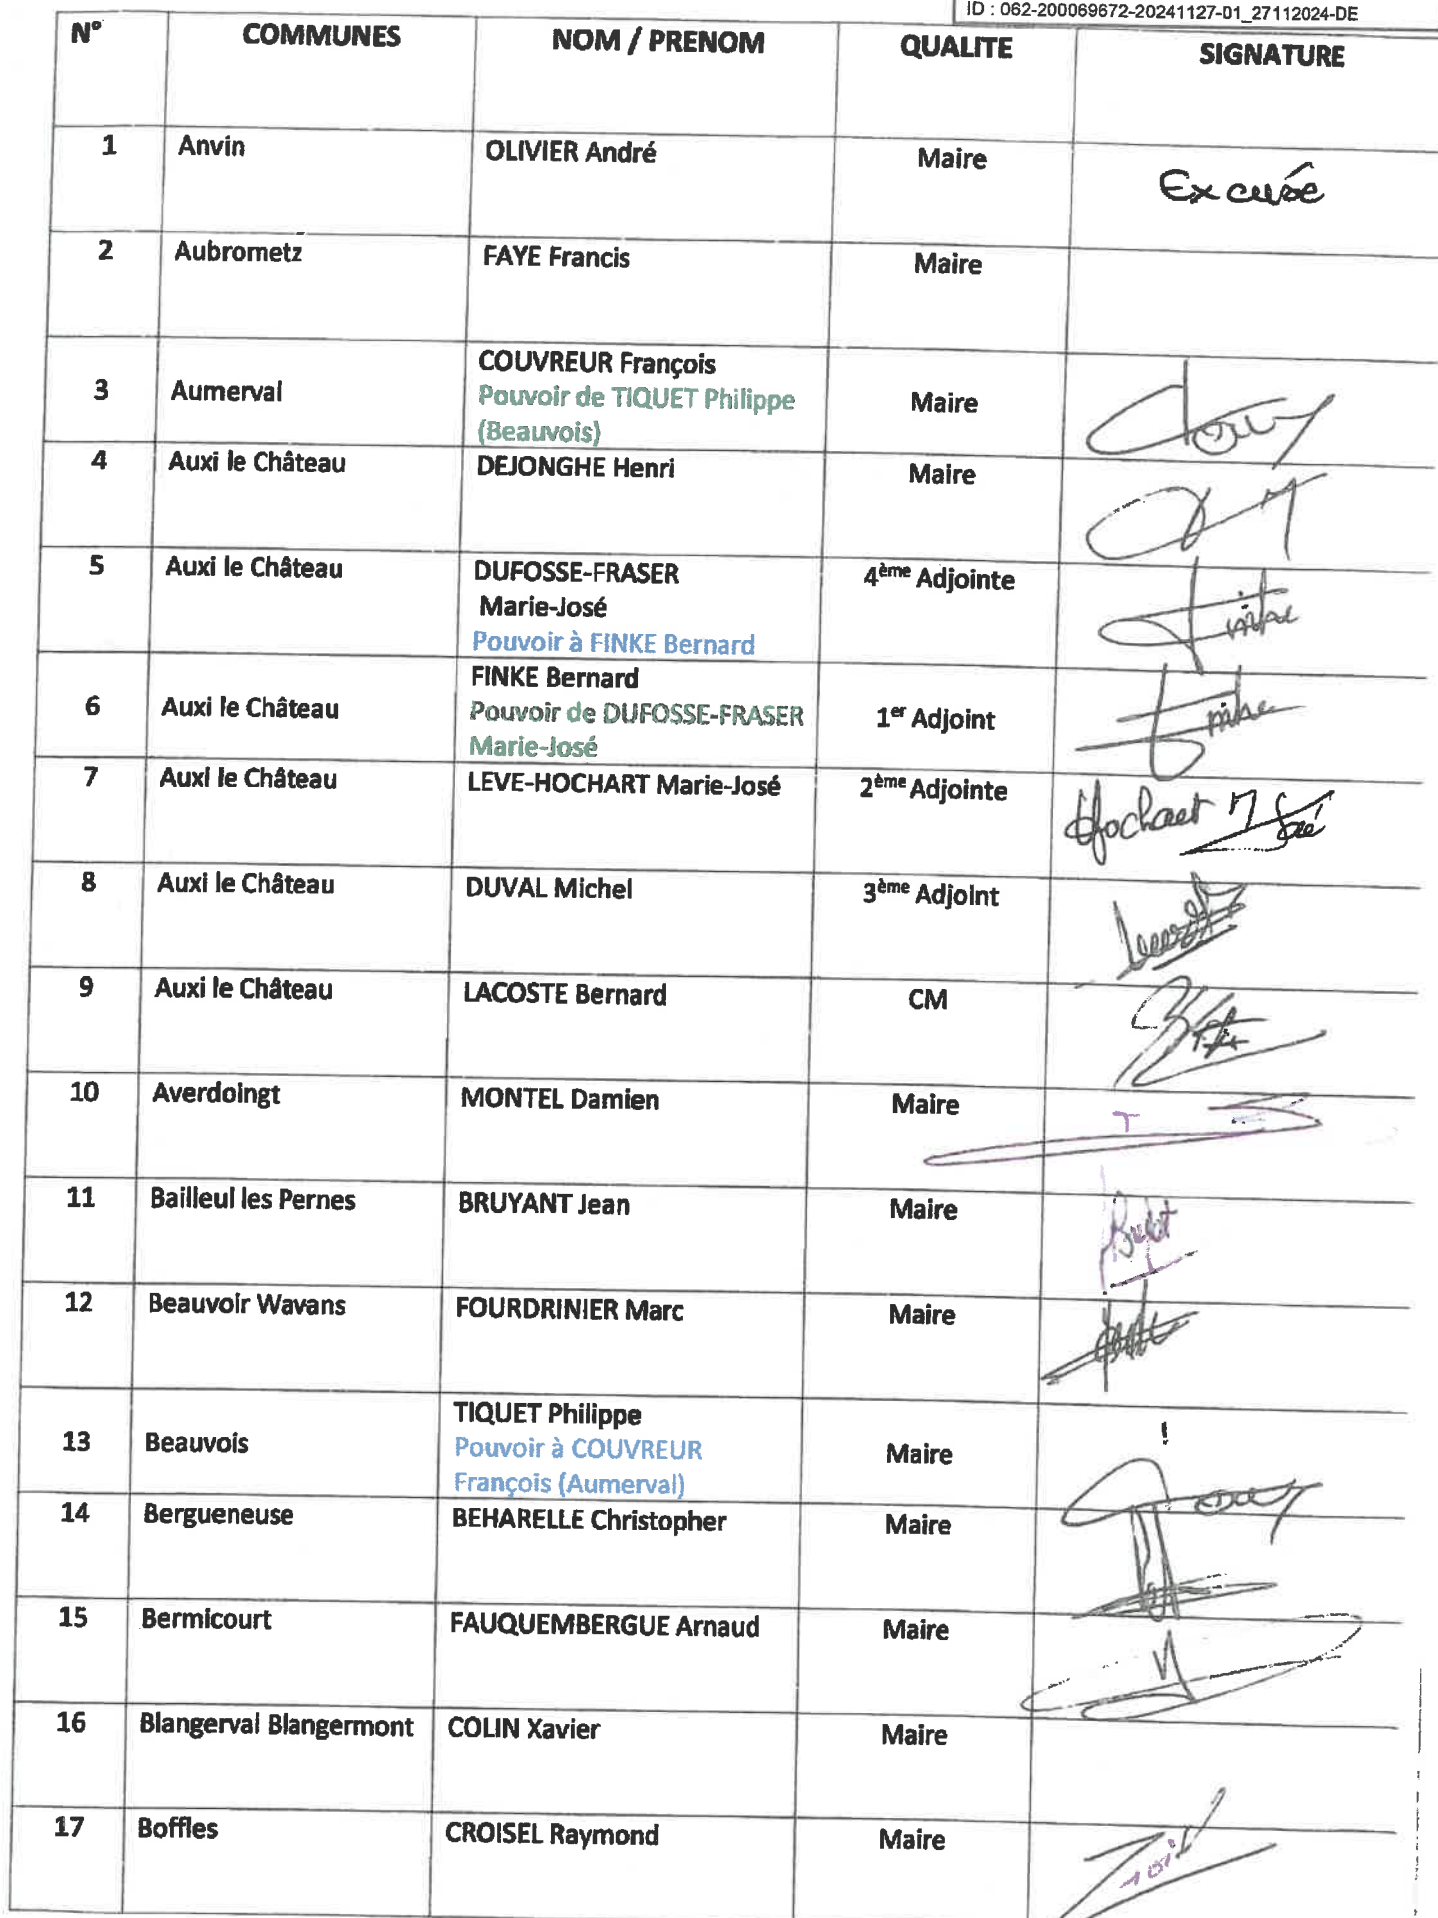 ID : 062-200069672-20241127-01_27112024-DE
N° COMMUNES NOM / PRENOM QUALITE SIGNATURE
1 Anvin OLIVIER André Maire Excusée
2 Aubrometz FAYE Francis Maire
COUVREUR François
3 Aumerval Pouvoir de TIQUET Philippe Maire
(Beauvois)
4 Auxi le Château DEJONGHE Henri Maire
5 Auxi le Château DUFOSSE-FRASER 4ème Adjointe
Marie-José
Pouvoir à FINKE Bernard
FINKE Bernard
6 Auxi le Château Pouvoir de DUFOSSE-FRASER 1er Adjoint
Marie-José
7 Auxi le Château LEVE-HOCHART Marie-José 2ème Adjointe Hochart M José
8 Auxi le Château DUVAL Michel 3ème Adjoint
9 Auxi le Château LACOSTE Bernard CM
10 Averdoingt MONTEL Damien Maire
11 Bailleul les Pernes BRUYANT Jean Maire
12 Beauvoir Wavans FOURDRINIER Marc Maire
TIQUET Philippe
13 Beauvois Pouvoir à COUVREUR Maire
François (Aumerval)
14 Bergueneuse BEHARELLE Christopher Maire
15 Bermicourt FAUQUEMBERGUE Arnaud Maire
16 Blangerval Blangermont COLIN Xavier Maire
17 Boffles CROISEL Raymond Maire